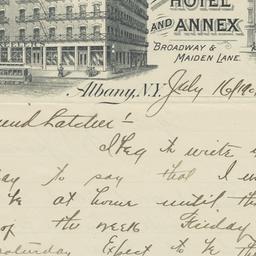 HOTEL
AND ANNEX
BROADWAY &
MAIDEN LANE.
Albany, N.Y. July 16/190
iend Latcher :-
I beg to write
ay to say that I
be at home until th
of the week Friday
Saturday Expect to be th